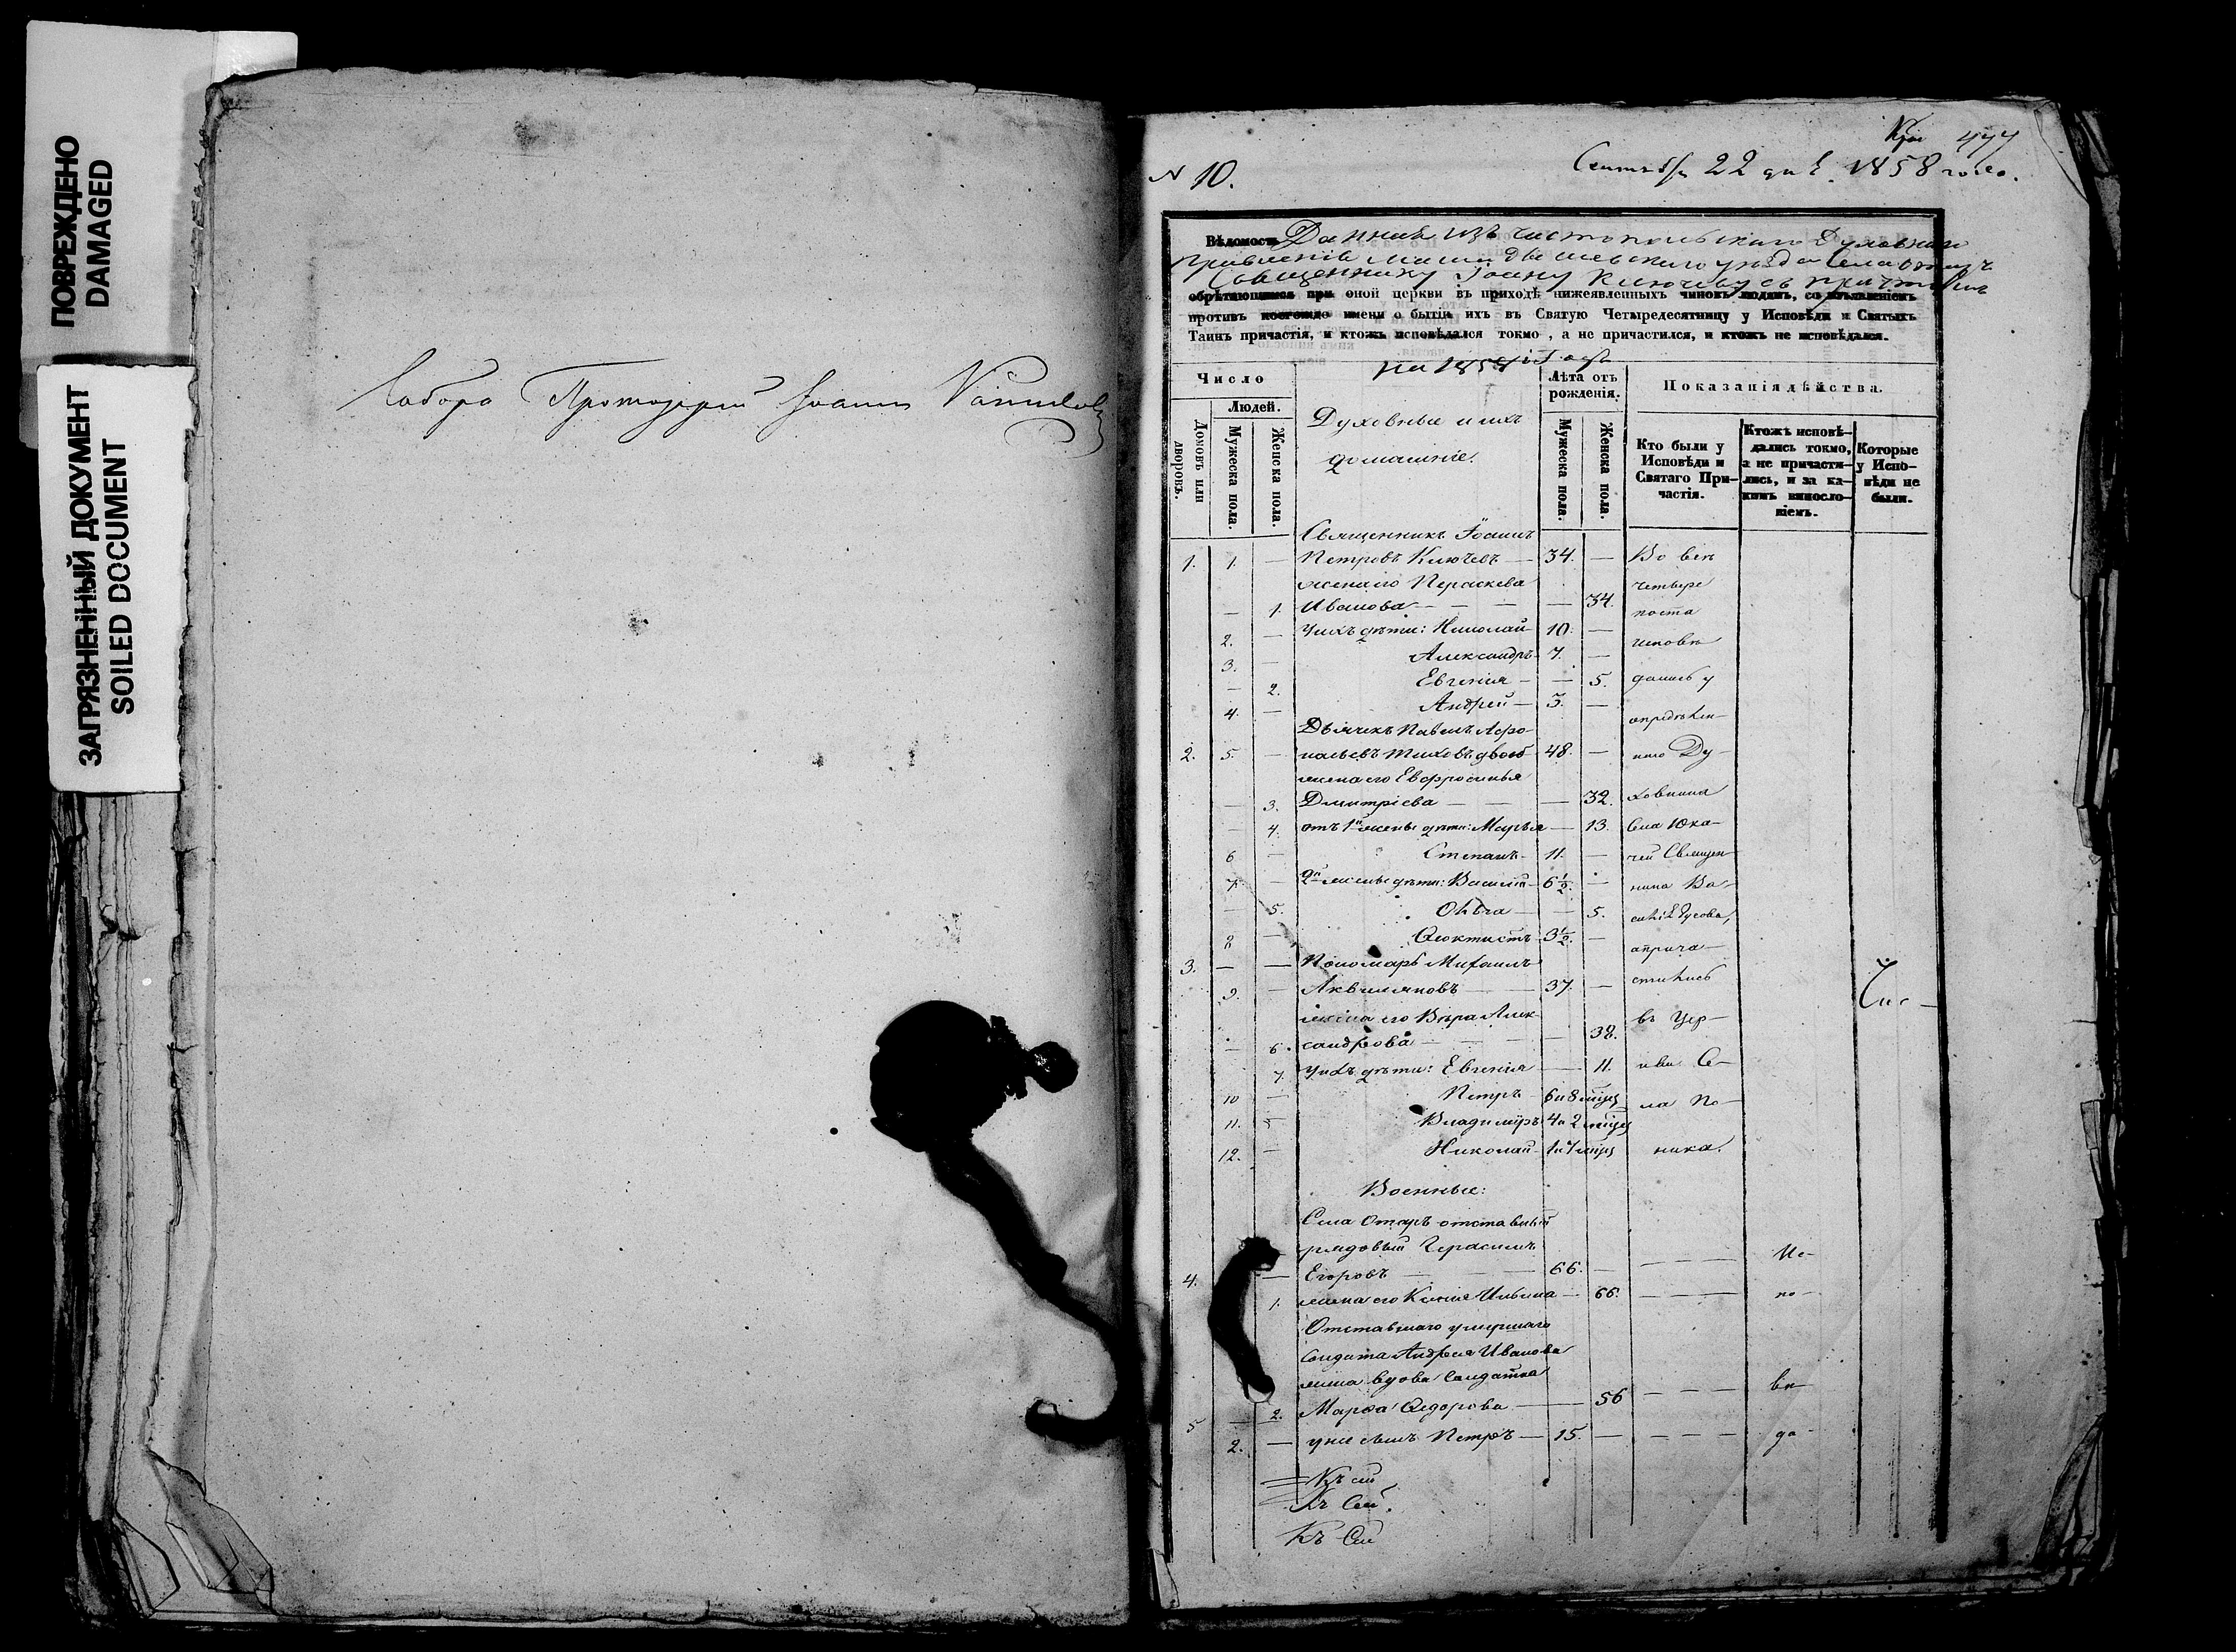 ПОВРЕЖДЕНО
DAMAGED
ЗАГРЯЗНЕННЫЙ ДОКУМЕНТ
SOILED DOCUMENT
Собора Протоіерей Іоаннъ
477
N 10.
Сентября 22 дня 1858 года.
Вѣдомость Данная изъ Чистопольскаго Духовнаго
Правленія Мамадышскаго уѣзда Села Отаръ
Священнику Іоанну Ключеву съ причтомъ
обрѣтающимся при оной церкви въ приходѣ нижеявленныхъ чиновъ людямъ, со изъявленіемъ
противъ коегождо имени о бытіи ихъ въ Святую Четыредесятницу у Исповѣди и Святыхъ
Таинъ причастія, и ктожъ исповѣдался токмо, а не причастился, и ктожъ не исповѣдался.
на 1858й Годъ
Число
Людей.
Домовъ или дворовъ.
Мужеска пола.
Женска пола.
Духовные и ихъ
домашніе.
Лѣта отъ рожденія.
Мужеска пола.
Женска пола.
Показанія дѣйства.
Кто были у Исповѣди и Святаго Причастія.
Ктожъ исповѣдались токмо, а не причастились, и за какимъ винословіемъ.
Которые у Исповѣди не были.
Священникъ Іоаннъ
1. 1. — Петровъ Ключевъ — 34. — Во вен
жена его Параскева четыре
— 1. Иванова — — — — 34. поста
2. — У нихъ дѣти: Николай 10. — исповѣ
3. — Александръ 7. —
— 2. Евгенія — — 5. дались у
4. — Андрей — 3. — опредѣлен
Дьячекъ Павелъ Афо-
2. 5. — насьевъ Тиховъ двоеб 48. — наго Ду-
жена его Евфросинья
— 3. Дмитріева — — — 32. ховника
— 4. отъ 1й жены дѣти: Марья — 13. Села Юка-
6 — Степанъ 11. — чей Священ-
7. — 2й жены дѣти: Василій 6½. — ника Ва-
— 5. Ольга — — 5. силія Гусева,
8 — Ѳеоктистъ 3½. — а прича-
3. — — Пономарь Михаилъ
9. — Аквиляновъ — 37. — стились
жена его Вѣра Алек- въ Цер-
— 6. сандрова — — — 38.
7. У нихъ дѣти: Евгенія — 11. кви Се-
10 — Петръ 6 и 8 мѣсц ла По-
11. — Владиміръ 4 и 2 мѣсц
12. — Николай 1 и 7 мѣсц ника.
Военные:
Села Отаръ отставный
рядовый Герасимъ
4. — Егоровъ — — 66. — — — — Ис-
1. жена его Ксенія Ильина — 66. — — — по-
Отставнаго умершаго
солдата Андрея Иванова
жена вдова Солдатка
5 — 2. Марѳа Ѳедорова — — 56 — — — вѣ-
2. — у нея сынъ Петръ — 15. — — — — да-
Къ сей
Къ Сей.
Къ Сей